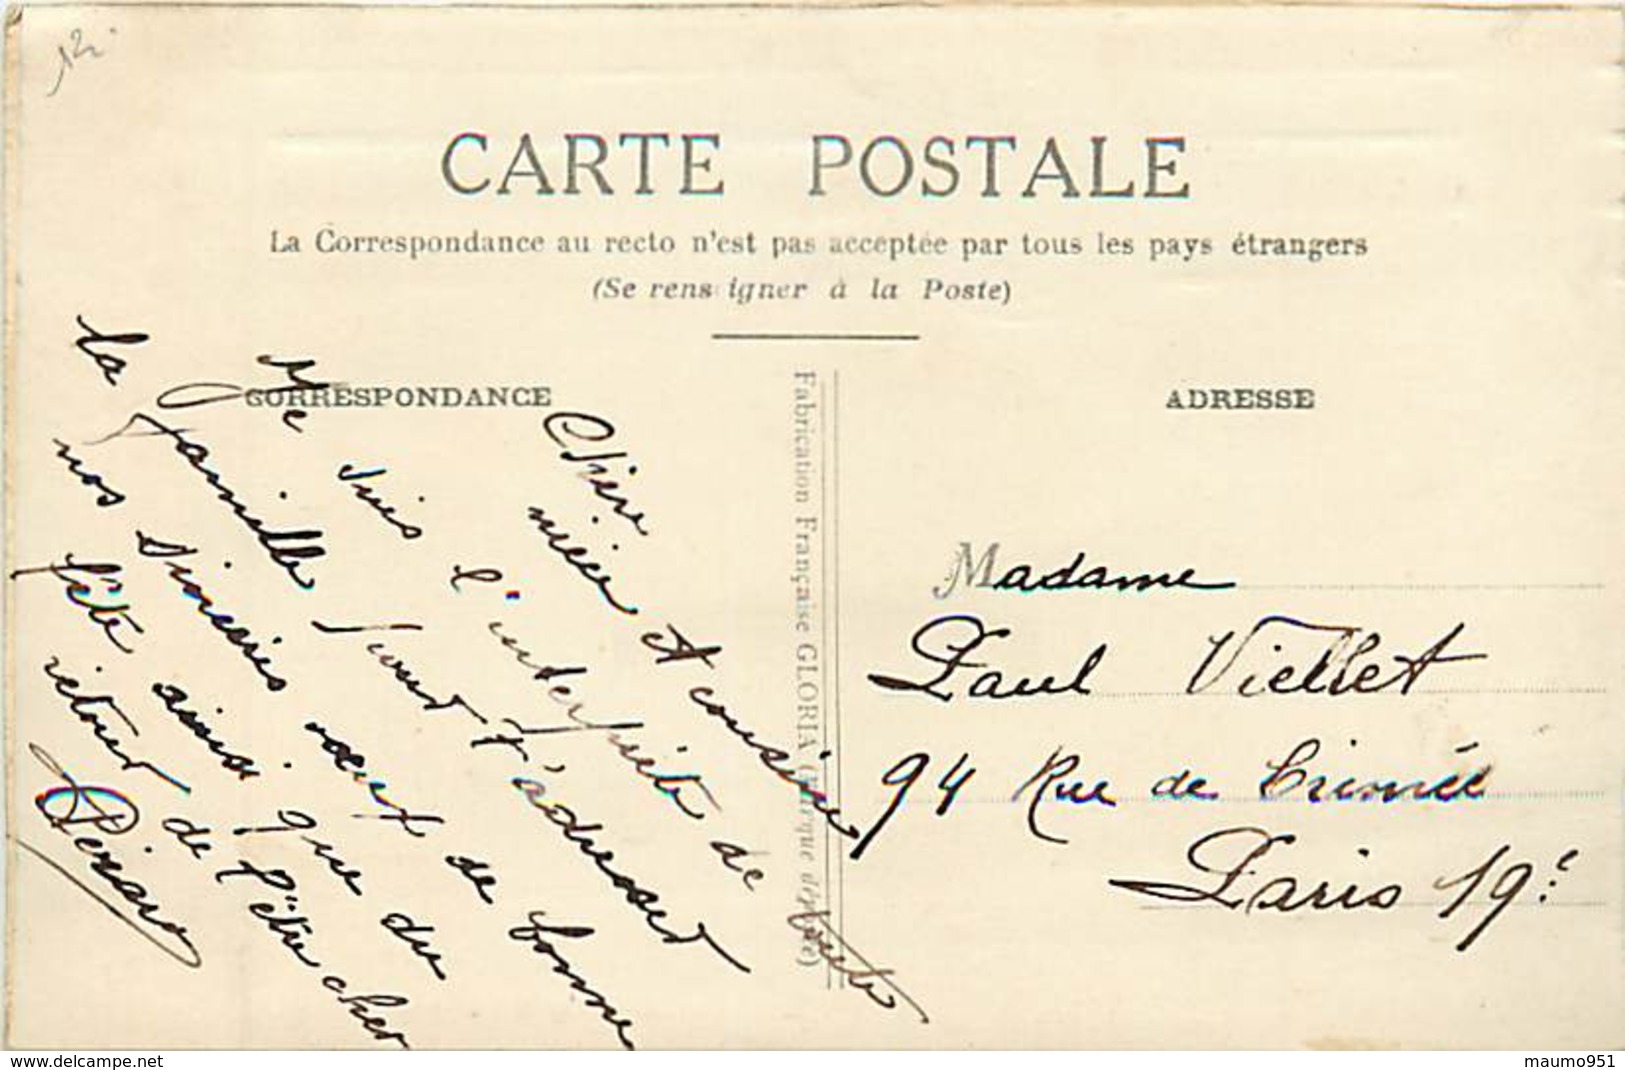 12
CARTE POSTALE
La Correspondance au recto n'est pas acceptée par tous les pays étrangers
(Se renseigner à la Poste)
CORRESPONDANCE
ADRESSE
Chère
nièce et cousine
Je suis l'interprète de toute
la famille pour t'adresser
nos sincères vœux de bonne
fête ainsi que du
retour de l'être cher
Fabrication Française GLORIA (Marque déposée)
Madame
Paul Viellet
94 Rue de Crimée
Paris 19e
www.delcampe.net
maumo951